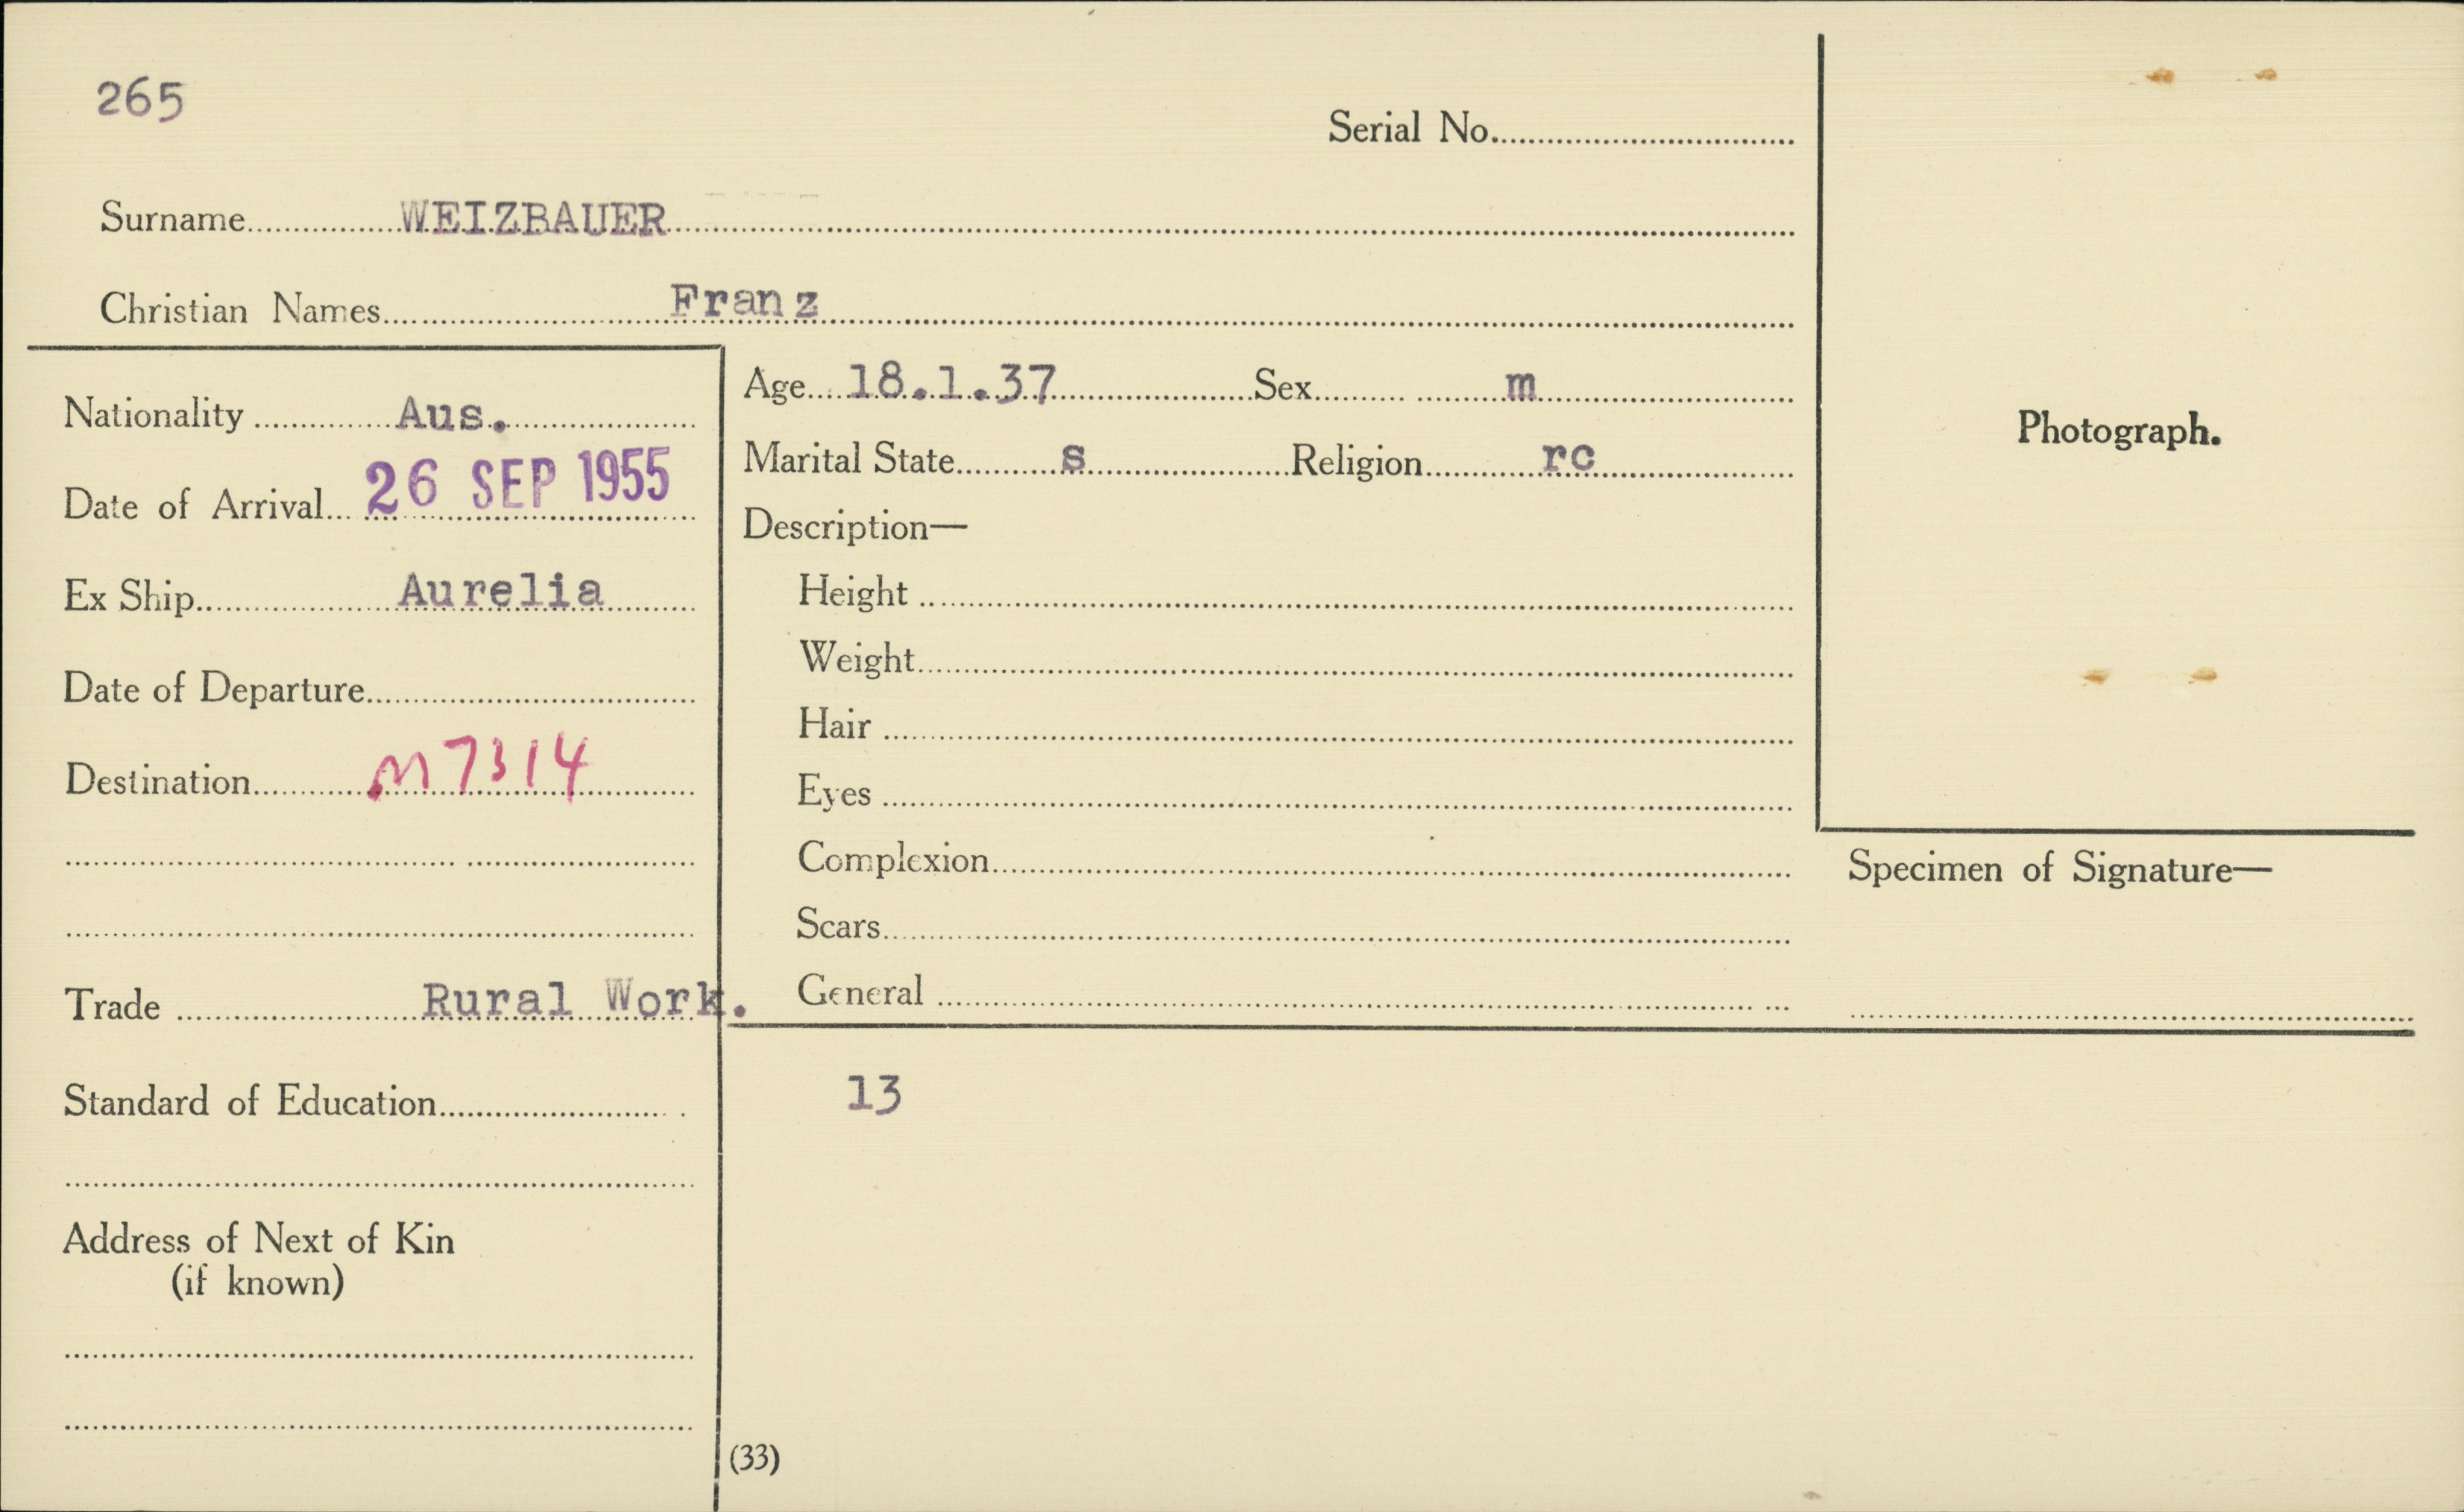 265
Serial No.
Surname WEIZBAUER
Christian Names Franz
Nationality Aus.
Date of Arrival 26 SEP 1955
Ex Ship Aurelia
Date of Departure
Destination M7314
Trade Rural Work.
Standard of Education
Address of Next of Kin
(if known)
Age 18.1.37 Sex m
Marital State s Religion rc
Description—
Height
Weight
Hair
Eyes
Complexion
Scars
General
13
(33)
Photograph.
Specimen of Signature—